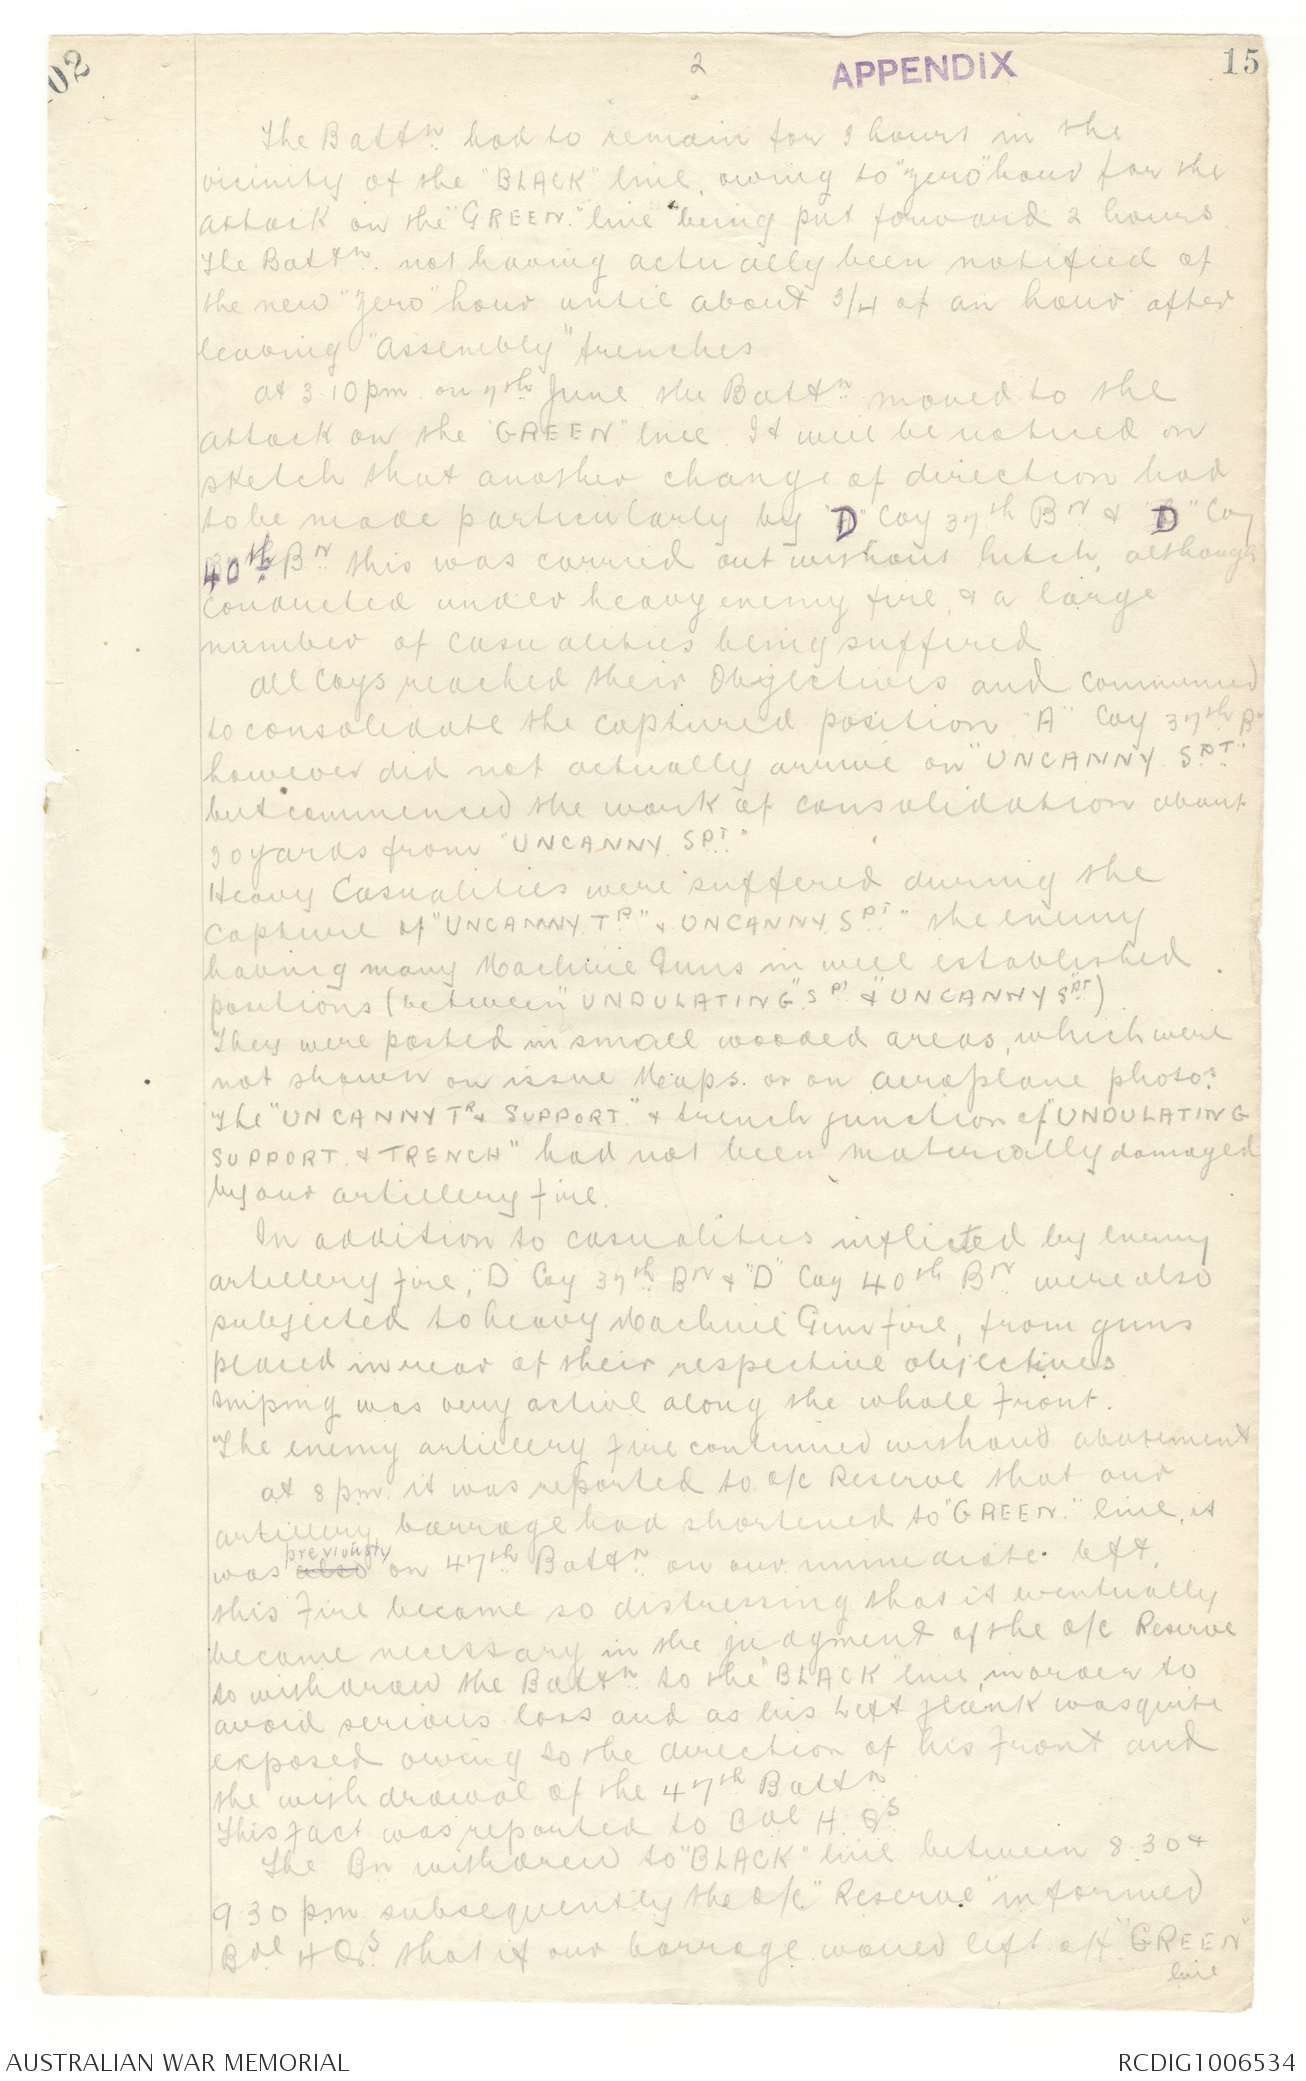 102
2
APPENDIX
15
The Battn. had to remain for 3 hours in the
vicinity of the "BLACK" line, owing to "zero" hour for the
attack on the "GREEN." line being put forward 2 hours.
The Battn. not having actually been notified of
the new "zero" hour until about 3/4 of an hour after
leaving "Assembly" trenches
at 3.10 pm. on 7th June the Battn. moved to the
attack on the "GREEN" line. It will be noticed on
sketch that another change of direction had
to be made particularly by "D" Coy 37th Bn & "D" Coy
40th Bn this was carried out without hitch, although
conducted under heavy enemy fire, & a large
number of casualities being suffered
All Coys reached their Objectives and commenced
to consolidate the captured position "A" Coy 37th Bn
however did not actually arrive on "UNCANNY SPT."
but commenced the work of consolidation about
30 yards from "UNCANNY. SPT."
Heavy Casualities were suffered during the
capture of "UNCANNY. TR" & UNCANNY. SPT." the enemy
having many Machine Guns in well established
positions (between "UNDULATING" SPT & "UNCANNY SPT)
They were posted in small wooded areas, which were
not shown on issue Maps. or on aeroplane photos.
The "UNCANNY TR & SUPPORT." & trench junction of "UNDULATING
SUPPORT. & TRENCH" had not been materially damaged
by our artillery fire.
In addition to casualities inflicted by enemy
artillery fire, "D" Coy 37th Bn & "D" Coy 40th Bn were also
subjected to heavy Machine Gun fire, from guns
placed in rear of their respective objectives
sniping was very active along the whole front.
The enemy artillery fire continued without abatement
at 8 pm. it was reported to o/c Reserve that our
artillery barrage had shortened to "GREEN." line, it
was also previously on 47th Battn. on our immediate left,
this fire became so distressing that it eventually
became necessary in the judgment of the o/c Reserve
to withdraw the Battn. to the "BLACK" line, in order to
avoid serious loss and as his left flank was quite
exposed owing to the direction of his front and
the withdrawal of the 47th Battn
This fact was reported to Bde H.Qs
The Bn withdrew to "BLACK" line between 8.30 &
9.30 pm. subsequently the o/c "Reserve" informed
Bde H Qs. that if our barrage was left off "GREEN"
line
AUSTRALIAN WAR MEMORIAL
RCDIG1006534